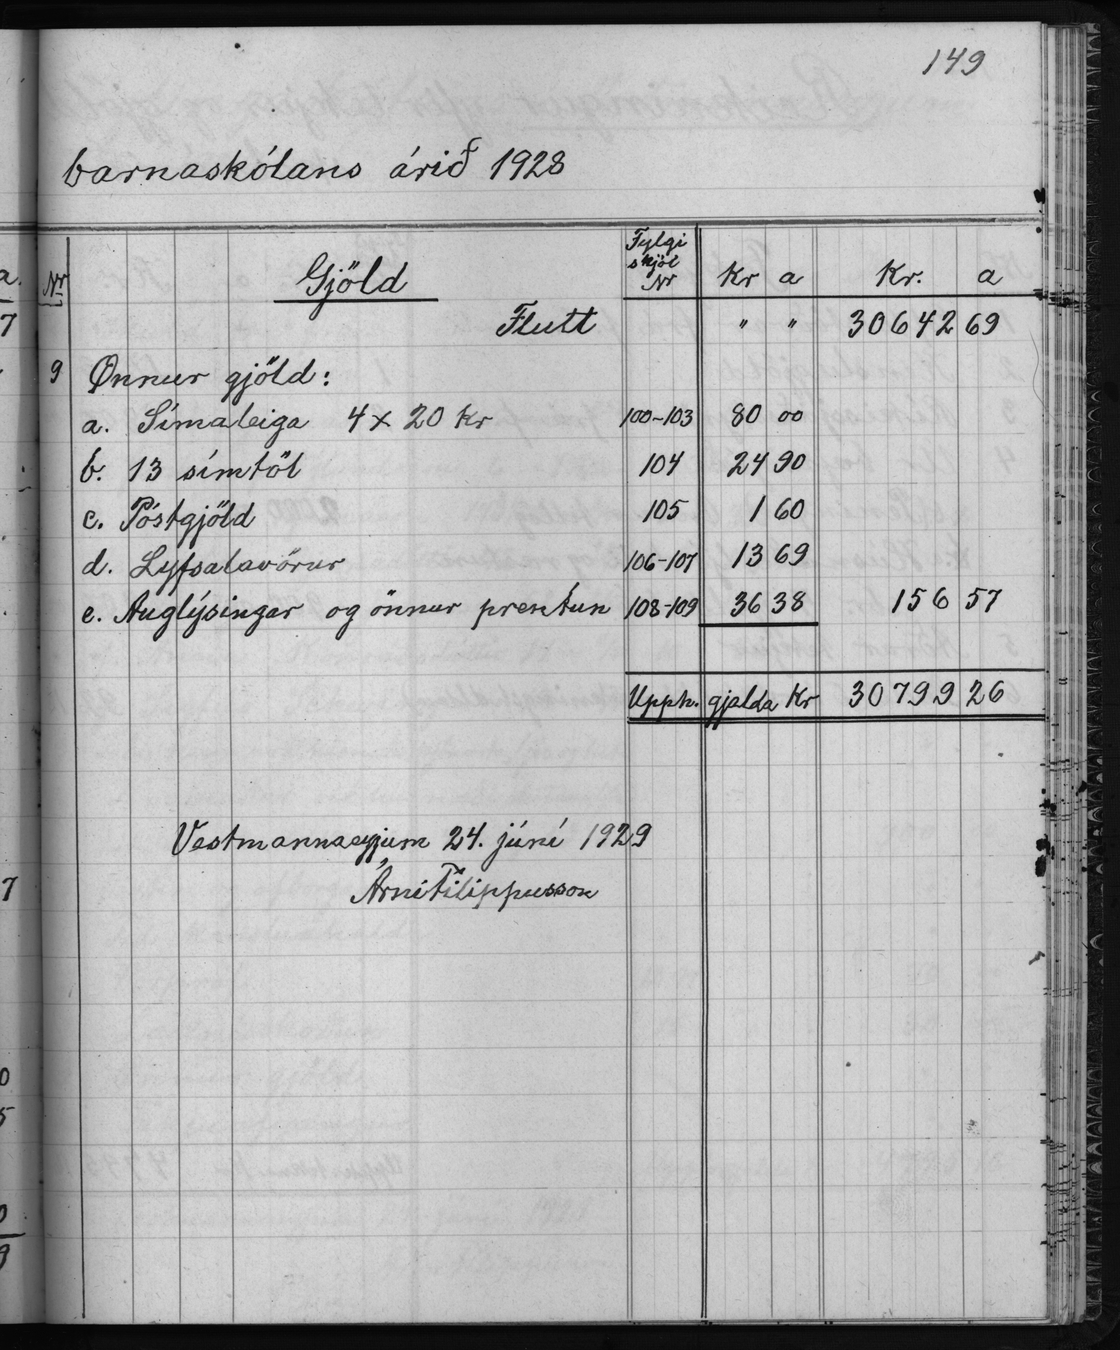 149
barnaskólans árið 1928
Nr Gjöld Fylgiskjöl Nr Kr a Kr. a
Flutt " " 30642 69
9 Önnur gjöld:
a. Símaleiga 4 x 20 Kr 100-103 80 00
b. 13 símtöl 104 24 90
c. Póstgjöld 105 1 60
d. Lyfsalavörur 106-107 13 69
e. Auglýsingar og önnur prentun 108-109 36 38 156 57
Upph. gjalda Kr 30799 26
Vestmannaeyjum 24. júní 1929
Árni Filippusson